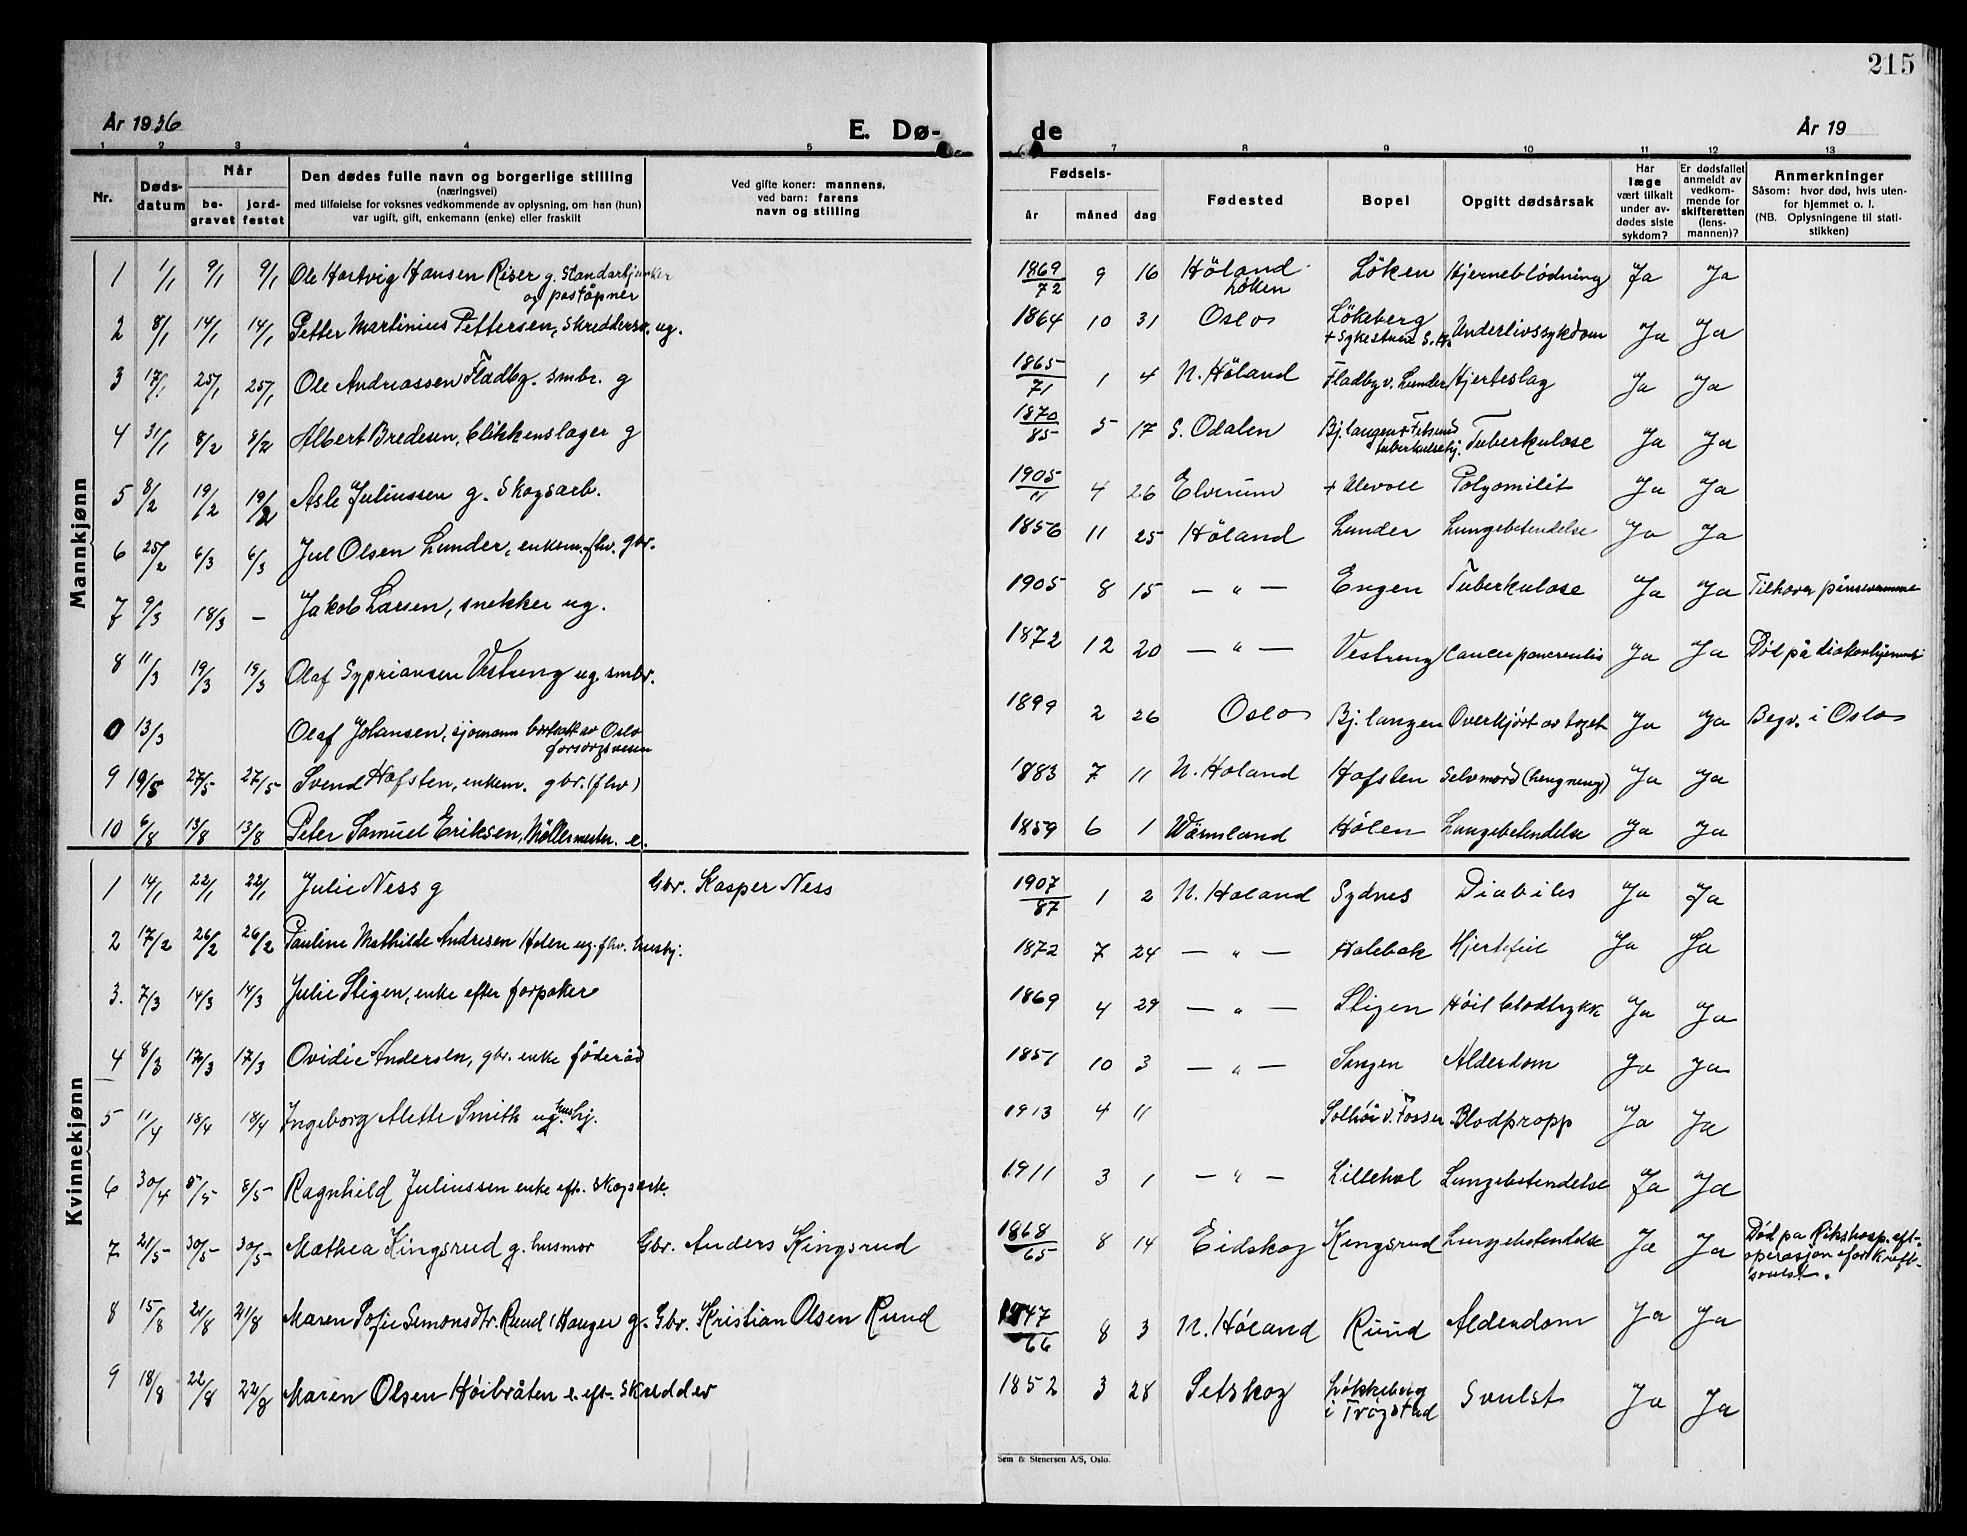 215
År 1936
E. Dø-
de
År 19
1 2 3 4 5 7 8 9 10 11 12 13
Nr.
Døds-
datum
Når
be-
gravet
jord-
festet
Den dødes fulle navn og borgerlige stilling
(næringsvei)
med tilføielse for voksnes vedkommende av oplysning, om han (hun)
var ugift, gift, enkemann (enke) eller fraskilt
Ved gifte koner: mannens,
ved barn: farens
navn og stilling
Fødsels-
år måned dag
Fødested
Bopel
Opgitt dødsårsak
Har
læge
vært tilkalt
under av-
dødes siste
sykdom?
Er dødsfallet
anmeldt av
vedkom-
mende for
skifteretten
(lens-
mannen)?
Anmerkninger
Såsom: hvor død, hvis uten-
for hjemmet o. l.
(NB. Oplysningene til stati-
stikken)
Mannkjønn
1 1/1 9/1 9/1 Ole Hartvig Hansen Riser g. Standartjunker 1869 9 16 Höland Löken Hjerneblödning Ja Ja
og poståpner 72 Löken
2 8/1 14/1 14/1 Petter Martinius Pettersen, Skreddersv. ug. 1864 10 31 Oslo Lökeberg Underlivssykdom Ja Ja
+ Sykestuen S. H.
3 17/1 25/1 25/1 Ole Andreassen Fladbg. smbr. g 1865/71 1 4 N. Höland Fladby v. Lunder Hjerteslag Ja Ja
4 31/1 8/2 8/2 Albert Bredesen, blikkenslager g 1870/85 5 17 S. Odalen Bj.langen + Fetsund Tuberkulose Ja Ja
tuberkulosehj.
5 8/2 19/2 19/2 Asle Juliussen g. Skogsarb. 1905/11 4 26 Elverum + Ulevoll Polyomilit Ja Ja
6 25/2 6/3 6/3 Jul Olsen Lunder, enkem. fhv. gbr. 1856 11 25 Höland Lunder Lungebetendelse Ja Ja
7 9/3 18/3 — Jakob Larsen, snekker ug. 1905 8 15 — " — Engen Tuberkulose Ja Ja Tilhører pinsevennene
8 11/3 19/3 19/3 Olaf Sypriansen Vestreng ug. smbr. 1872 12 20 — " — Vestreng Cancer pancreatis Ja Ja Död på diakonhjemmet
0 13/3 Olaf Johansen, sjømann bortsatt av Oslo 1899 2 26 Oslo Bj.langen Overkjört av toget Ja Ja Begv. i Oslo
forsorgsvesen
9 19/5 27/5 27/5 Svend Hofsten, enkem. gbr. (fhv) 1883 7 11 N. Höland Hofsten Selvmord (hengning) Ja Ja
10 6/8 13/8 13/8 Peter Samuel Eriksen, Möllermester. e. 1859 6 1 Wärmland Hölen Lungebetendelse Ja Ja
Kvinnekjønn
1 14/1 22/1 22/1 Julie Ness g Gbr. Kasper Ness 1907/87 1 2 N. Höland Sydnes Diabites Ja Ja
2 17/2 26/2 26/2 Pauline Mathilde Andresen Holen ug. fhv. hushj. 1872 7 24 — " — Holebak Hjertefeil Ja Ja
3. 7/3 14/3 14/3 Julie Stigen, enke efter forpakter 1869 4 29 — " — Stigen Höit blodtrykk Ja Ja
4 8/3 17/3 17/3 Ovidie Andersen, gbr. enke föderåd 1851 10 3 — " — Sangen Alderdom Ja Ja
5 11/4 18/4 18/4 Ingeborg Alette Smith ug. hushj. 1913 4 11 Solhöi v. Fosser Blodpropp Ja Ja
6 30/4 8/5 8/5 Ragnhild Juliussen enke eft. Skogsarb. 1911 3 1 — " — Lillehol Lungebetendelse Ja Ja
7 21/5 30/5 30/5 Mathea Kingsrud g. husmor Gbr. Anders Kingsrud 1868/65 8 14 Eidskog Kingsrud Lungebetendelse Ja Ja Död på Rikshosp. eft.
operasjon for kreft-
svulst.
8 15/8 21/8 21/8 Maren Sofie Simonsdtr. Rund (Hauger g. Gbr. Kristian Olsen Rund 1847/66 8 3 N. Höland Rund Alderdom Ja Ja
9 18/8 22/8 22/8 Maren Olsen Höibråten e. eft. Skredder 1852 3 28 Setskog Lökkeberg Svulst Ja Ja
i Trögstad
Sem & Stenersen A/S, Oslo.